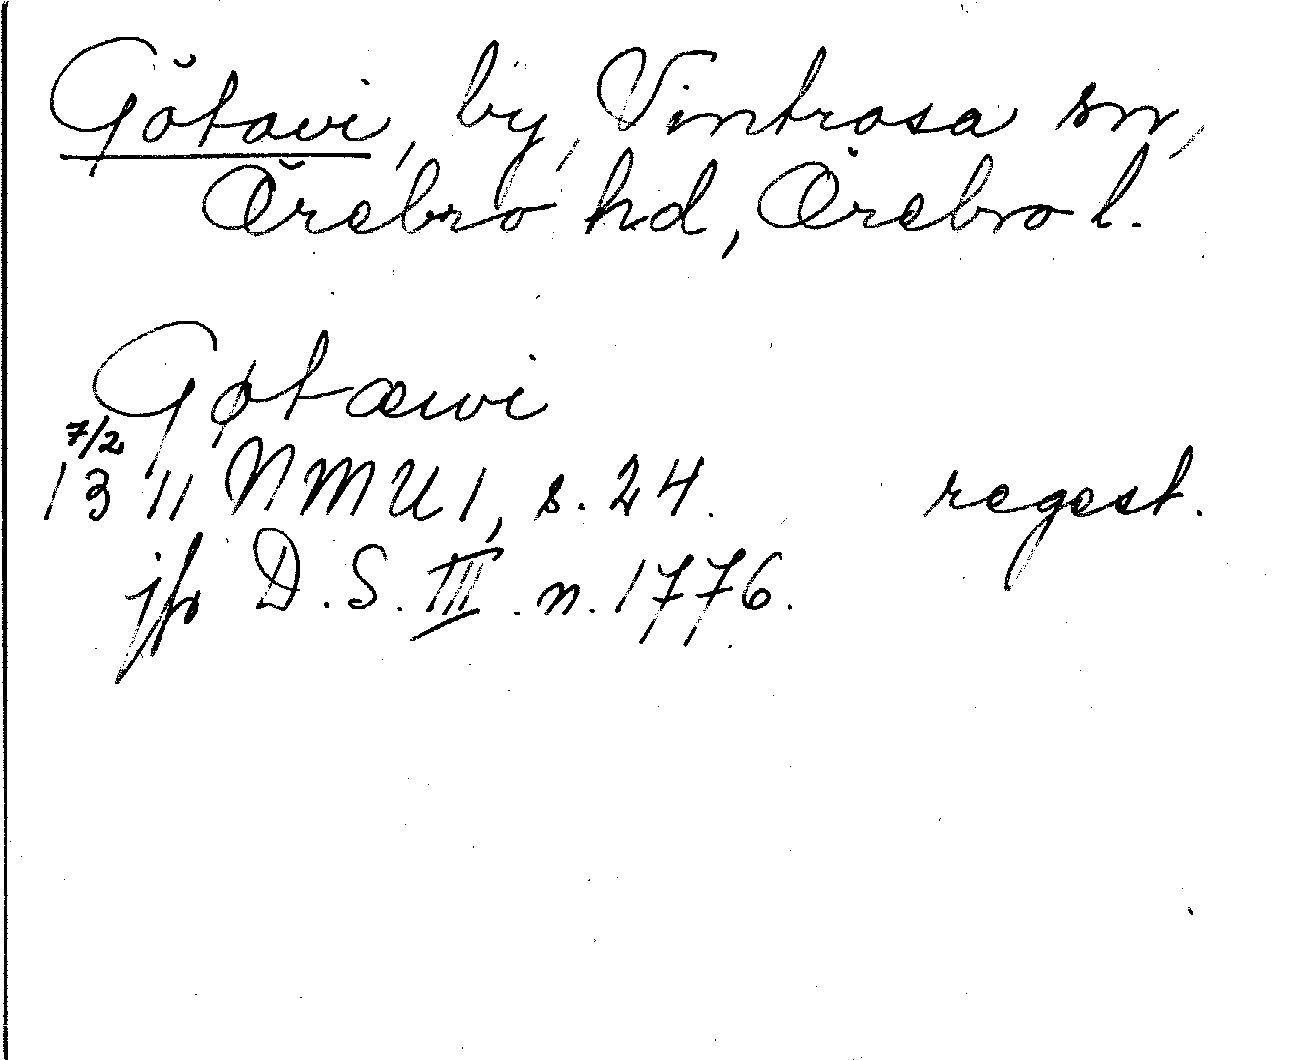 Götavi, by, Vintrosa sn,
Örebro hd, Örebro l.
Gøtæwi
7/2
1311 NMU 1, s. 24. regest.
jfr D.S. III. n. 1776.